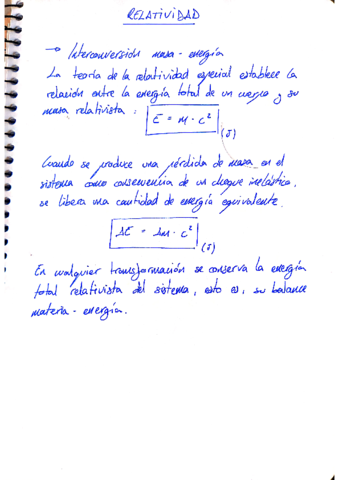 RELATIVIDAD
→ Interconversión masa-energía
La teoría de la relatividad especial establece la
relación entre la energía total de un cuerpo y su
masa relativista:
E = m · c²
(J)
Cuando se produce una pérdida de masa en el
sistema como consecuencia de un choque inelástico,
se libera una cantidad de energía equivalente.
ΔE = Δm · c²
(J)
En cualquier transformación se conserva la energía
total relativista del sistema, esto es, su balance
materia-energía.